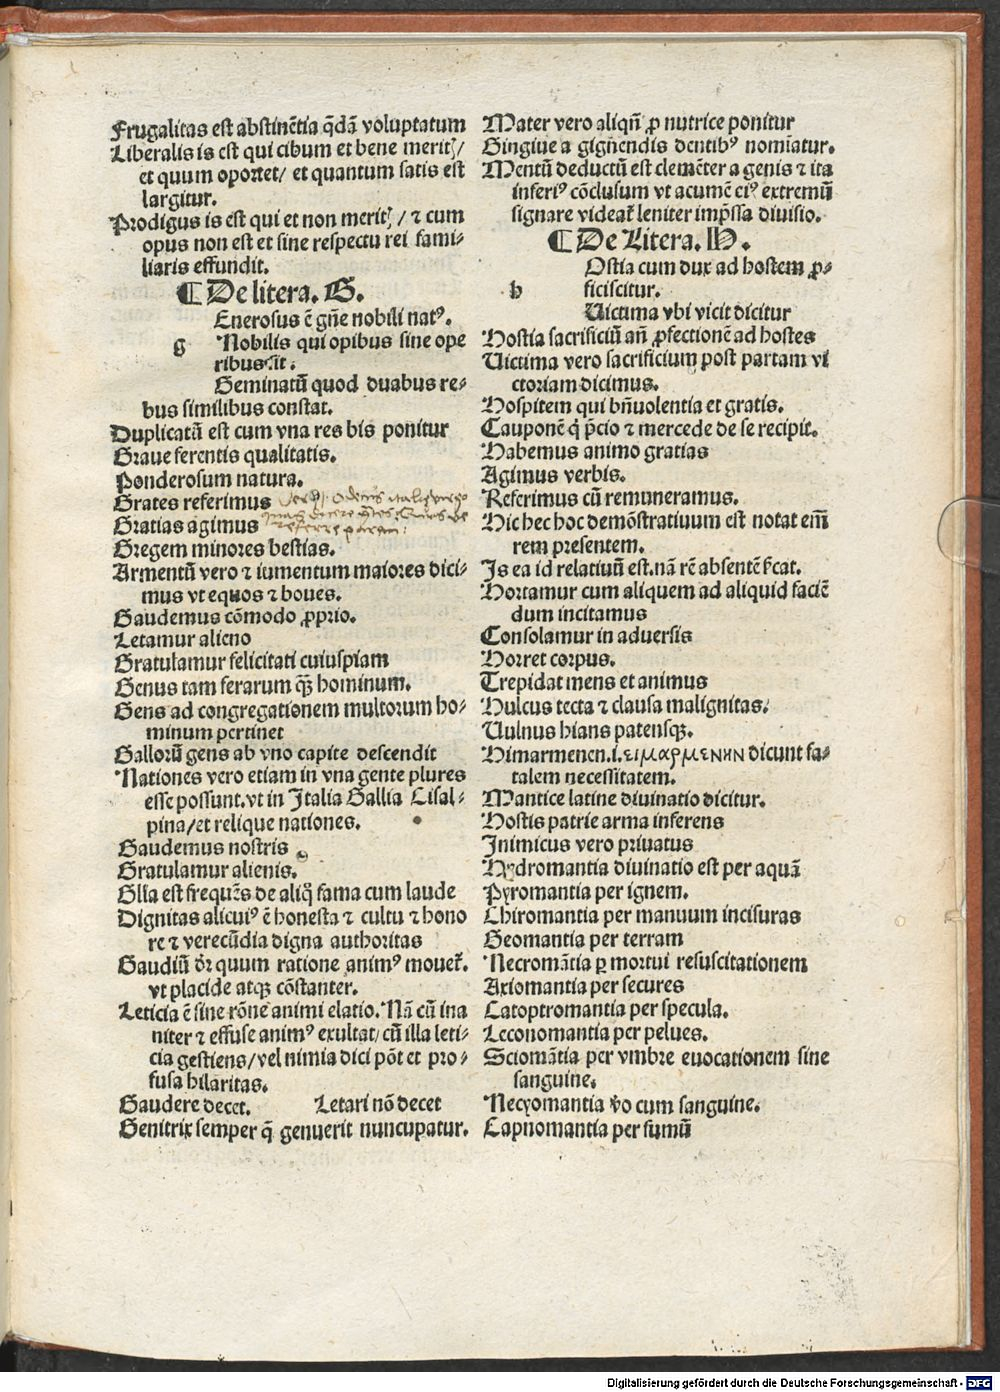 Frugalitas est abstinētia q̄dā voluptatum
Liberalis is est qui cibum et bene meritꝭ/
et quum oportet/ et quantum satis est
largitur.
Prodigus is est qui et non meritꝭ/ ⁊ cum
opus non est et sine respectu rei fami⸗
liaris effundit.
¶ De litera. G.
Enerosus ē gn̄e nobili natꝰ.
g Nobilis qui opibus sine ope
ribus sit.
Geminatū quod duabus re⸗
bus similibus constat.
Duplicatū est cum vna res bis ponitur
Graue ferentis qualitatis.
Ponderosum natura.
Grates referimus
Gratias agimus
Gregem minores bestias.
Armentū vero ⁊ iumentum maiores dici⸗
mus vt equos ⁊ boues.
Gaudemus cōmodo ꝓprio.
Letamur alieno
Gratulamur felicitati cuiuspiam
Genus tam ferarum qȝ hominum.
Gens ad congregationem multorum ho⸗
minum pertinet
Gallorū gens ab vno capite descendit
Nationes vero etiam in vna gente plures
esse possunt. vt in Italia Gallia Cisal⸗
pina/ et relique nationes.
Gaudemus nostris
Gratulamur alienis.
Glīa est frequēs de aliq̄ fama cum laude
Dignitas alicuiꝰ ē honesta ⁊ cultu ⁊ hono
re ⁊ verecūdia digna authoritas
Gaudiū dr̄ quum ratione animꝰ mouet᷑.
vt placide atqȝ cōstanter.
Leticia ē sine rōne animi elatio. Nā cū ina
niter ⁊ effuse animꝰ exultat/ cū illa leti⸗
cia gestiens/ vel nimia dici pōt et pro⸗
fusa hilaritas.
Gaudere decet. Letari nō decet
Genitrix semper q̄ genuerit nuncupatur.
Mater vero aliqn̄ ꝓ nutrice ponitur
Gingiue a gignēdis dentibꝰ nomīatur.
Mentū deductū est clemēter a genis ⁊ ita
inferiꝰ cōclusum vt acumē eiꝰ extremū
signare videat᷑ leniter imp̄ssa diuisio.
¶ De Litera. H.
Ostia cum dux ad hostem ꝓ⸗
h ficiscitur.
Uictima vbi vicit dicitur
Hostia sacrificiū an̄ ꝓfectionē ad hostes
Uictima vero sacrificium post partam vi
ctoriam dicimus.
Hospitem qui bn̄uolentia et gratis.
Cauponē q̄ p̄cio ⁊ mercede de se recipit.
Habemus animo gratias
Agimus verbis.
Referimus cū remuneramus.
Hic hec hoc demōstratiuum est notat em̄
rem presentem.
Is ea id relatiuū est. nā rē absentē s̄icat.
Hortamur cum aliquem ad aliquid faciē
dum incitamus
Consolamur in aduersis
Horret corpus.
Trepidat mens et animus
Hulcus tecta ⁊ clausa malignitas.
Uulnus hians patensqȝ.
Himarmenen .i. ειμαρμενην dicunt fa⸗
talem necessitatem.
Mantice latine diuinatio dicitur.
Hostis patrie arma inferens
Inimicus vero priuatus
Hydromantia diuinatio est per aquā
Pyromantia per ignem.
Chiromantia per manuum incisuras
Geomantia per terram
Necromātia ꝑ mortui resuscitationem
Axiomantia per secures
Catoptromantia per specula.
Leconomantia per pelues.
Sciomātia per vmbre euocationem sine
sanguine.
Necyomantia v̄o cum sanguine.
Capnomantia per fumū
Digitalisierung gefördert durch die Deutsche Forschungsgemeinschaft - DFG